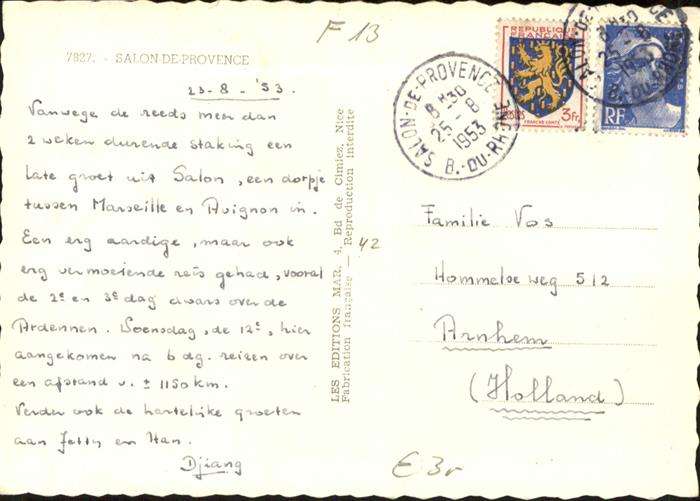 F 13
7827. - SALON-DE-PROVENCE
23-8-'53.
Vanwege de reeds meer dan
2 weken durende staking een
late groet uit Salon, een dorpje
tussen Marseille en Avignon in.
Een erg aardige, maar ook
erg vermoeiende reis gehad, vooral
de 2e en 3e dag dwars over de
Ardennen. Woensdag, de 12e, hier
aangekomen na 6 dg. reizen over
een afstand v. ± 1150 km.
Verder ook de hartelijke groeten
aan Jetty en Han.
Djiang
LES EDITIONS MAR, 4, Bd de Cimiez, Nice
Fabrication française — Reproduction interdite
42
REPUBLIQUE FRANCAISE
POSTES
3Fr.
FRANCHE-COMTE
RF
SALON-DE-PROVENCE
8H30
25-8
1953
B.-DU-RHONE
8H30
25-8
1953
Familie Vos
Hommelse weg 512
Arnhem
(Holland)
€ 3,-